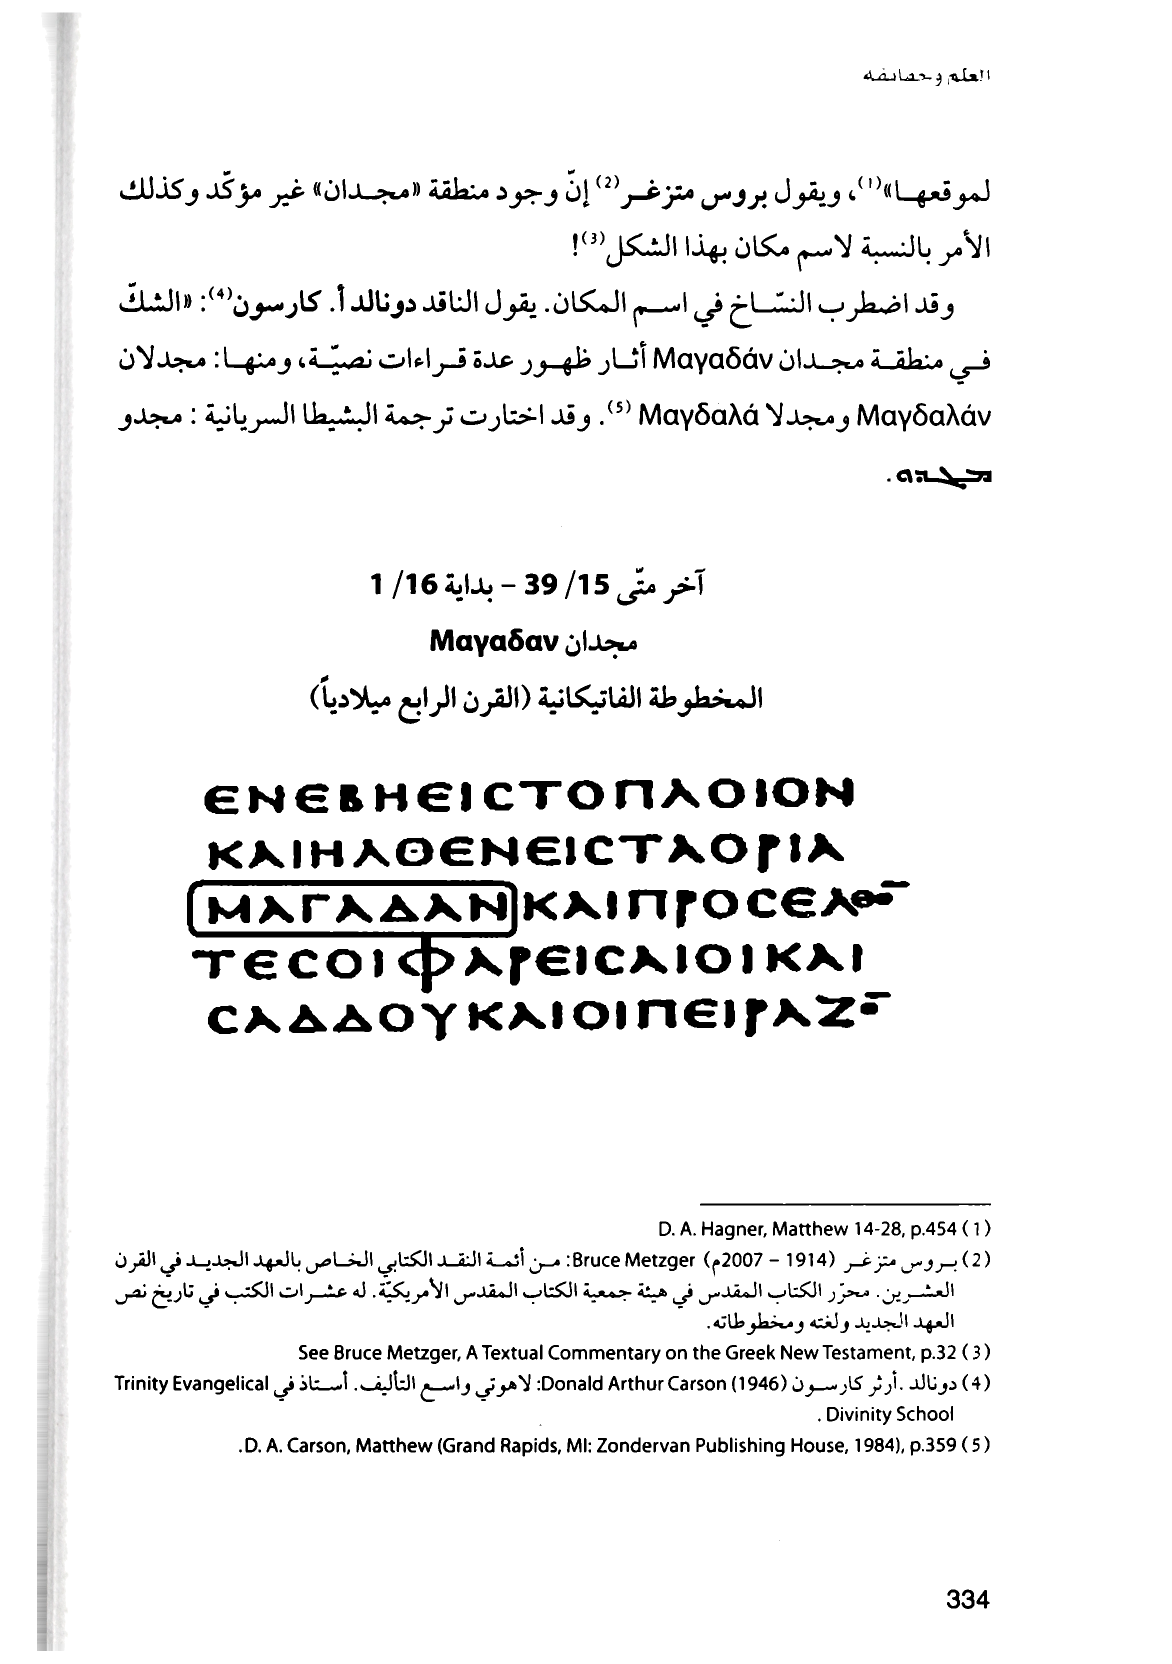 العلم وحقائقه
لموقعهـا»(1)، ويقول بروس متزغـر(2) إنّ وجود منطقة «مجـدان» غير مؤكّد وكذلك
الأمر بالنسبة لاسم مكان بهذا الشكل(3)!
وقد اضطرب النسّـاخ في اسـم المكان. يقول الناقد دونالد أ. كارسون(4): «الشكّ
فـي منطقـة مجـدان Μαγαδάν أثـار ظهـور عدة قـراءات نصيّـة، ومنهـا: مجدلان
Μαγδαλάν ومجدلا Μαγδαλά (5). وقد اختارت ترجمة البشيطا السريانية : مجدو
ܡܓܕܘ .
آخر متّى 15/ 39 – بداية 16/ 1
مجدان Μαγαδαν
المخطوطة الفاتيكانية (القرن الرابع ميلادياً)
ΕΝΕΒΗΕΙCΤΟΠΛΟΙΟΝ
ΚΑΙΗΛΘΕΝΕΙCΤΑΟΡΙΑ
ΜΑΓΑΔΑΝΚΑΙΠΡΟCΕΛΘΟ̅
ΤΕCΟΙΦΑΡΕΙCΑΙΟΙΚΑΙ
CΑΔΔΟΥΚΑΙΟΙΠΕΙΡΑΖΟ̅
(1) D. A. Hagner, Matthew 14-28, p.454
(2) بـروس متزغـر Bruce Metzger (1914 – 2007م): مـن أئمـة النقـد الكتابي الخـاص بالعهد الجديـد في القرن
العشـرين. محرّر الكتاب المقدس في هيئة جمعية الكتاب المقدس الأمريكيّة. له عشـرات الكتب في تاريخ نص
العهد الجديد ولغته ومخطوطاته.
(3) See Bruce Metzger, A Textual Commentary on the Greek New Testament, p.32
(4) دونالد .أرثر كارسـون Donald Arthur Carson (1946): لاهوتي واسـع التأليف. أسـتاذ في Trinity Evangelical
Divinity School .
(5) D. A. Carson, Matthew (Grand Rapids, MI: Zondervan Publishing House, 1984), p.359.
334